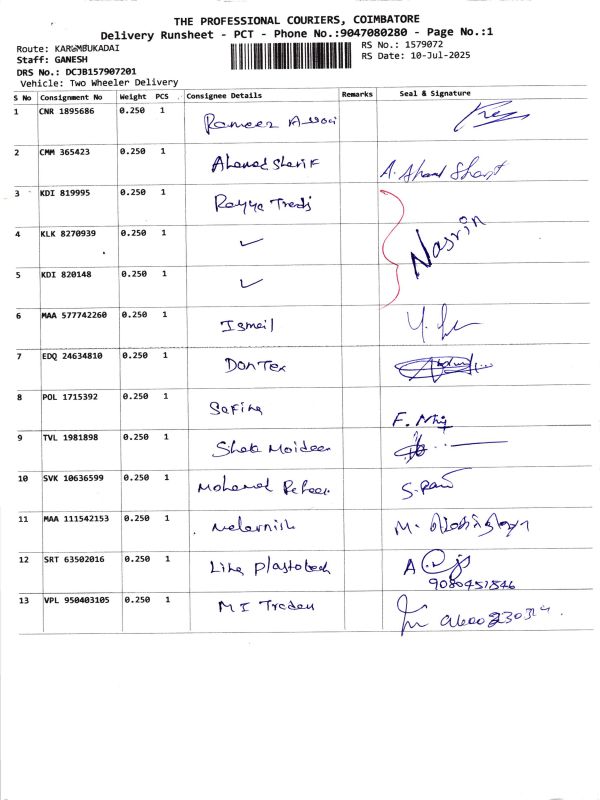 THE PROFESSIONAL COURIERS, COIMBATORE
Delivery Runsheet - PCT - Phone No.:9047080280 - Page No.:1
Route: KARUMBUKADAI
RS No.: 1579072
Staff: GANESH
RS Date: 10-Jul-2025
DRS No.: DCJB157907201
Vehicle: Two Wheeler Delivery
S No Consignment No Weight PCS Consignee Details Remarks Seal & Signature
1 CNR 1895686 0.250 1 Rameez Assoi
2 CMM 365423 0.250 1 Ahamad Sharif A. Ahamd Sharif
3 KDI 819995 0.250 1 Rayya
4 KLK 8270939 0.250 1 ✓ Nasrin
5 KDI 820148 0.250 1 ✓
6 MAA 577742260 0.250 1 Ismail
7 EDQ 24634810 0.250 1 Don Tex
8 POL 1715392 0.250 1 Safina F.
9 TVL 1981898 0.250 1 Moideen
10 SVK 10636599 0.250 1 Mohamed
11 MAA 111542153 0.250 1 M.
12 SRT 63502016 0.250 1 Plastotech A
9080451846
13 VPL 950403105 0.250 1 M I Traders